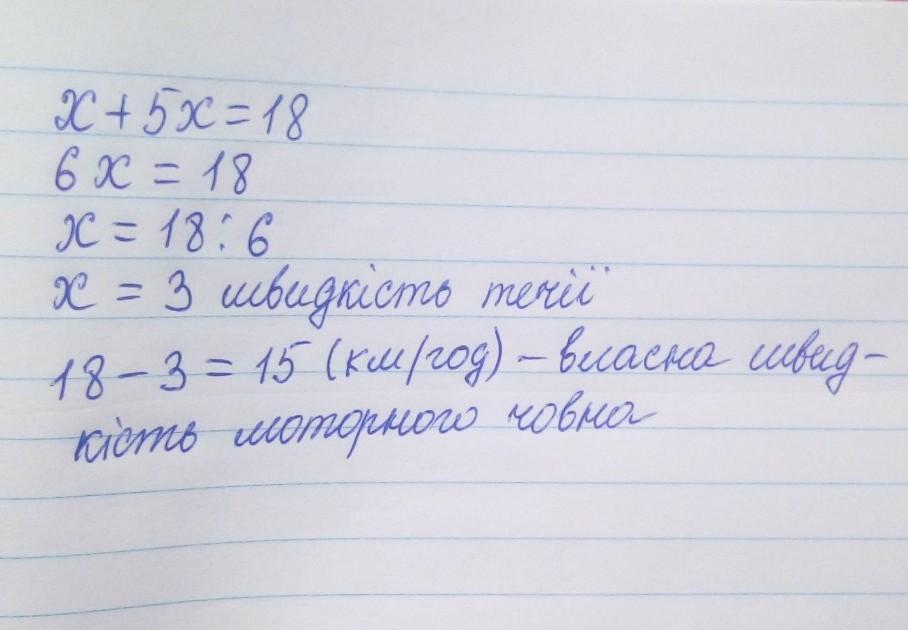 x + 5x = 18
6x = 18
x = 18 : 6
x = 3 швидкість течії
18 – 3 = 15 (км/год) – власна швид-
кість моторного човна